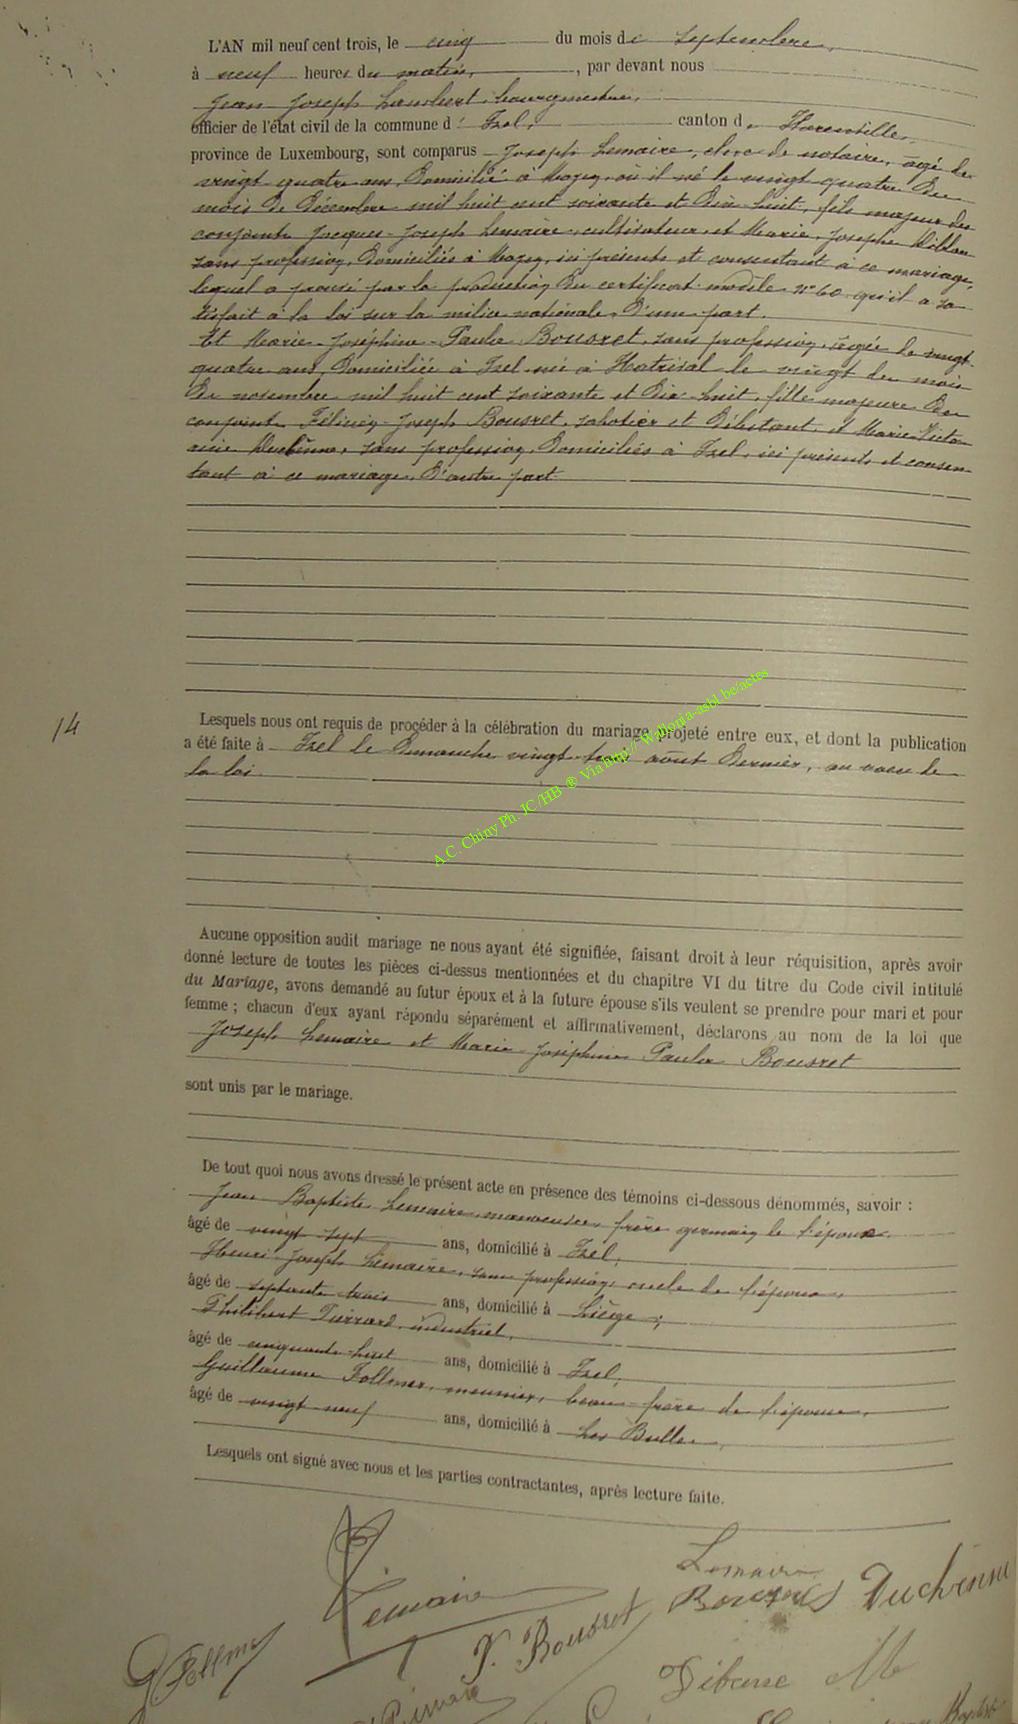 L'AN mil neuf cent trois, le cinq du mois de Septembre,
à neuf heures du matin, , par devant nous
Jean Joseph Lambert, bourgmestre,
officier de l'état civil de la commune d' Izel, canton de Florenville,
province de Luxembourg, sont comparus Joseph Lemaire, clerc de notaire, âgé de
vingt quatre ans, domicilié à Moyen, où il né le vingt quatre du
mois de Décembre mil huit cent soixante et dix huit, fils majeur des
conjoints Jacques-Joseph Lemaire, cultivateur, et Marie, Josephe
sans profession, domiciliés à Moyen, ici présents et consentant à ce mariage,
lequel a prouvé par la production du certificat modèle N° 60 qu'il a sa-
tisfait à la loi sur la milice nationale, d'une part.
Et Marie-Joséphine-Paula Bousret, sans profession, âgée de vingt-
quatre ans, domiciliée à Izel, né à Hatrival le vingt du mois
de novembre mil huit cent soixante et dix-huit, fille majeure des
conjoints Félicien-Joseph Bousret, sabotier et débitant, et Marie-Victo-
rine Duchêne, sans profession, domiciliés à Izel, ici présents et consen-
tant à ce mariage, d'autre part.
14
Lesquels nous ont requis de procéder à la célébration du mariage projeté entre eux, et dont la publication
a été faite à Izel le dimanche vingt trois août dernier, au vœu de
la loi.
A.C. Chiny Ph. JC/HB ® Via http://Wallonia-asbl.be/actes
Aucune opposition audit mariage ne nous ayant été signifiée, faisant droit à leur réquisition, après avoir
donné lecture de toutes les pièces ci-dessus mentionnées et du chapitre VI du titre du Code civil intitulé
du Mariage, avons demandé au futur époux et à la future épouse s'ils veulent se prendre pour mari et pour
femme ; chacun d'eux ayant répondu séparément et affirmativement, déclarons au nom de la loi que
Joseph Lemaire et Marie Joséphine Paula Bousret
sont unis par le mariage.
De tout quoi nous avons dressé le présent acte en présence des témoins ci-dessous dénommés, savoir :
Jean Baptiste Lemaire, manoeuvre, frère germain de l'époux,
âgé de vingt sept ans, domicilié à Izel,
Henri Joseph Lemaire, sans profession, oncle de l'époux,
âgé de septante trois ans, domicilié à Liège ;
Philibert industriel,
âgé de cinquante-huit ans, domicilié à Izel,
Guillaume Follmer, meunier, beau-frère de l'épouse,
âgé de vingt neuf ans, domicilié à Les Bulles,
Lesquels ont signé avec nous et les parties contractantes, après lecture faite.
Lemaire
Lemaire
Bousret Duchênne
G Follmer
P. Bousret